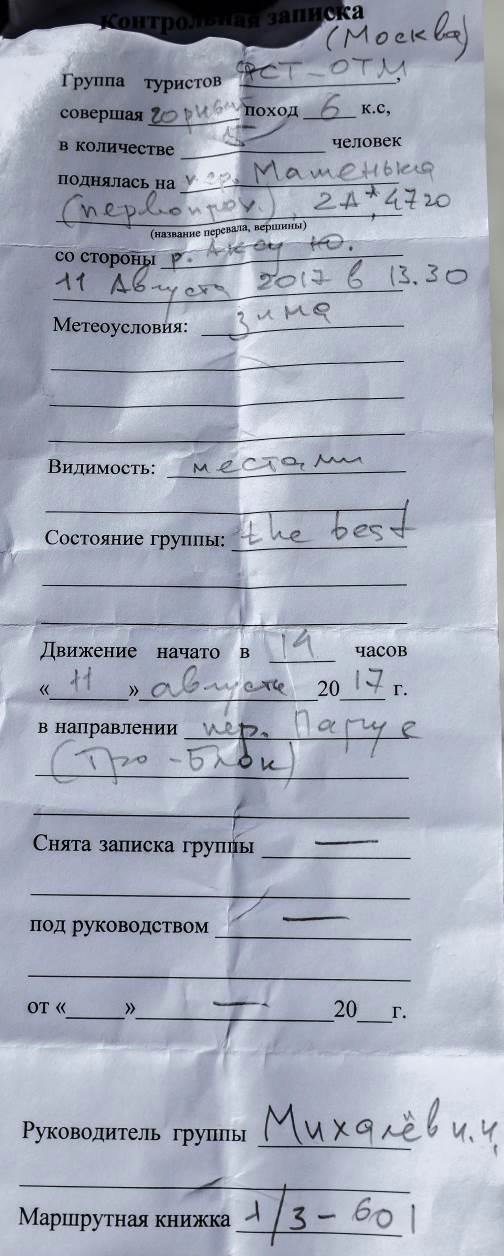 Контрольная записка
(Москва)
Группа туристов ФСТ-ОТМ,
совершая горный поход 6 к.с,
в количестве 5 человек
поднялась на пер. Машенька
(первопрох.), 2А*, 4720
(название перевала, вершины)
со стороны р. Аксу Ю.
11 Августа 2017 в 13.30
Метеоусловия: зима
Видимость: местами
Состояние группы: the best
Движение начато в 14 часов
« 11 » августа 2017 г.
в направлении пер. Парус
(Тро-Блок)
Снята записка группы —
под руководством —
от «____» — 20__г.
Руководитель группы Михалёв И.И.
Маршрутная книжка 1/3-601